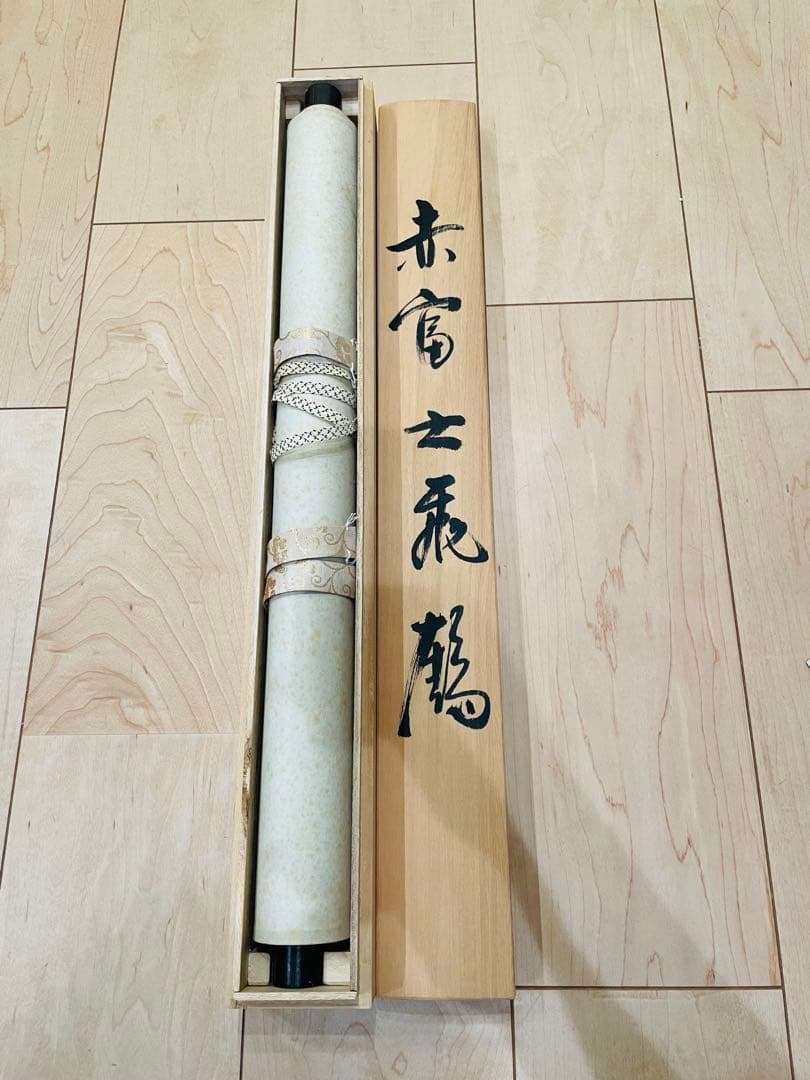 赤富士飛鶴